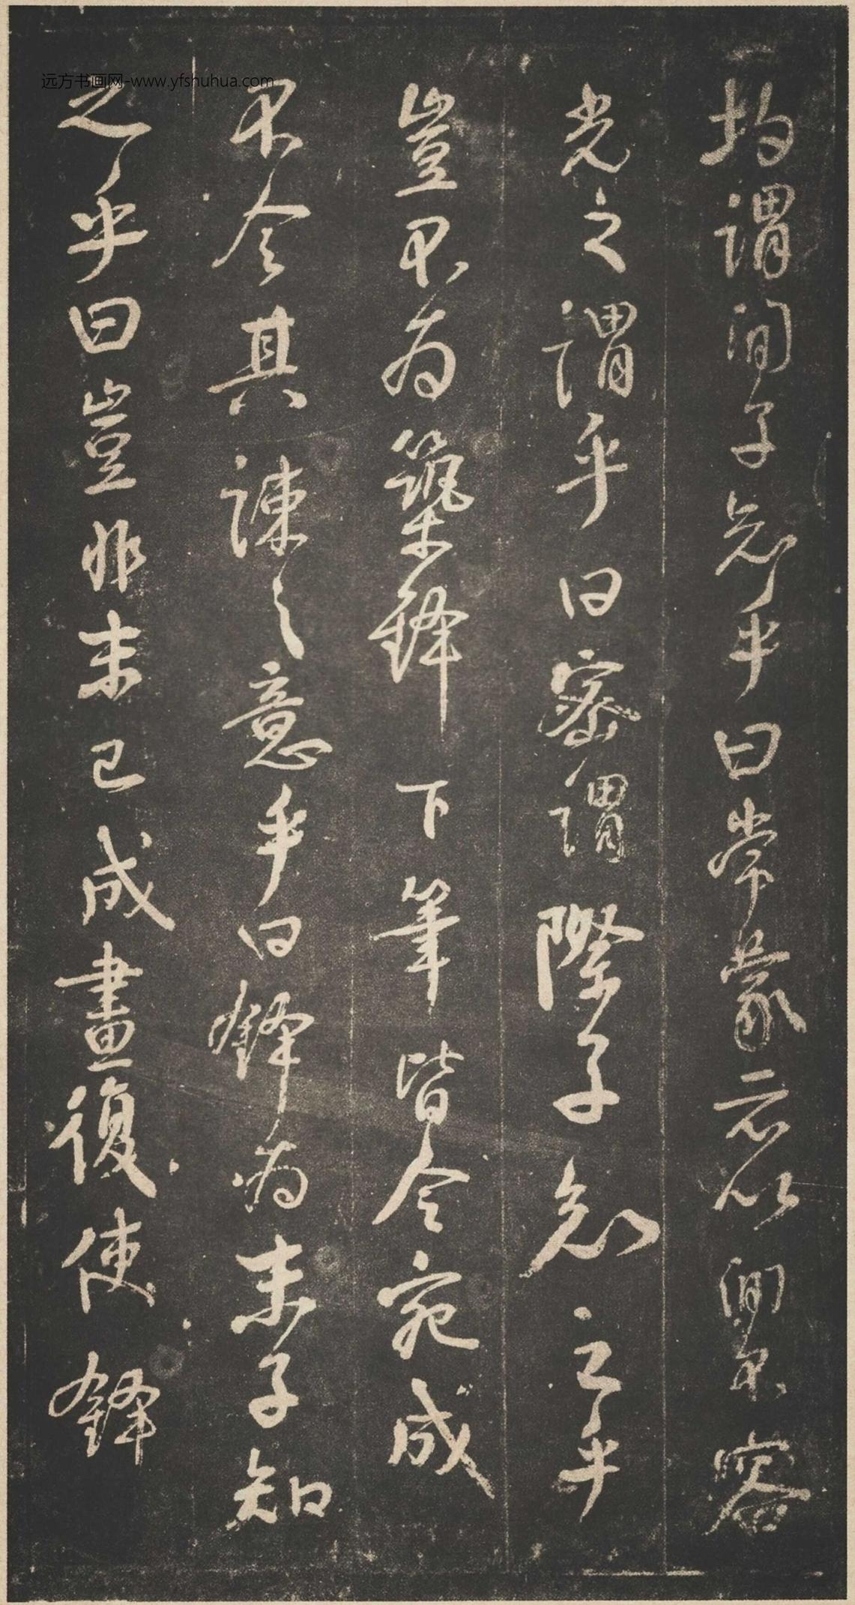 远方书画网-www.yfshuhua.com
均謂間子知乎曰常蒙示以間不容
光之謂乎曰密謂際子知之乎
豈不為築鋒下筆皆令宛成
不令其疎之意乎曰鋒為末子知
之乎曰豈非末已成畫復使鋒